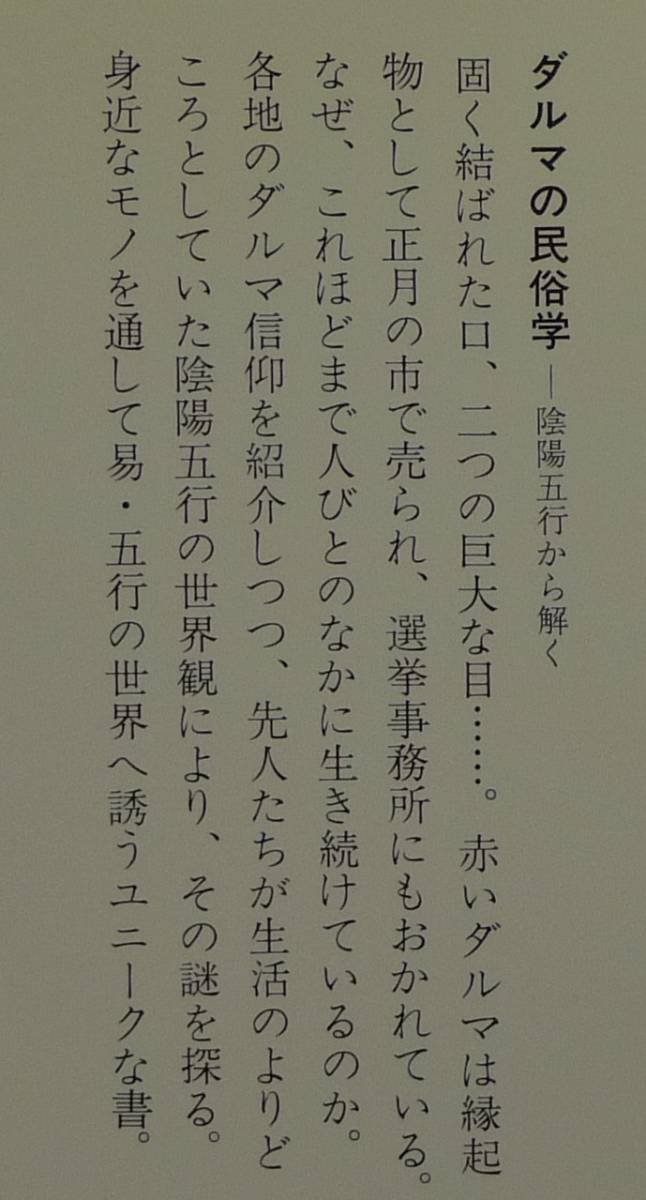 ダルマの民俗学―陰陽五行から解く
固く結ばれた口、二つの巨大な目……。赤いダルマは縁起
物として正月の市で売られ、選挙事務所にもおかれている。
なぜ、これほどまで人びとのなかに生き続けているのか。
各地のダルマ信仰を紹介しつつ、先人たちが生活のよりど
ころとしていた陰陽五行の世界観により、その謎を探る。
身近なモノを通して易・五行の世界へ誘うユニークな書。